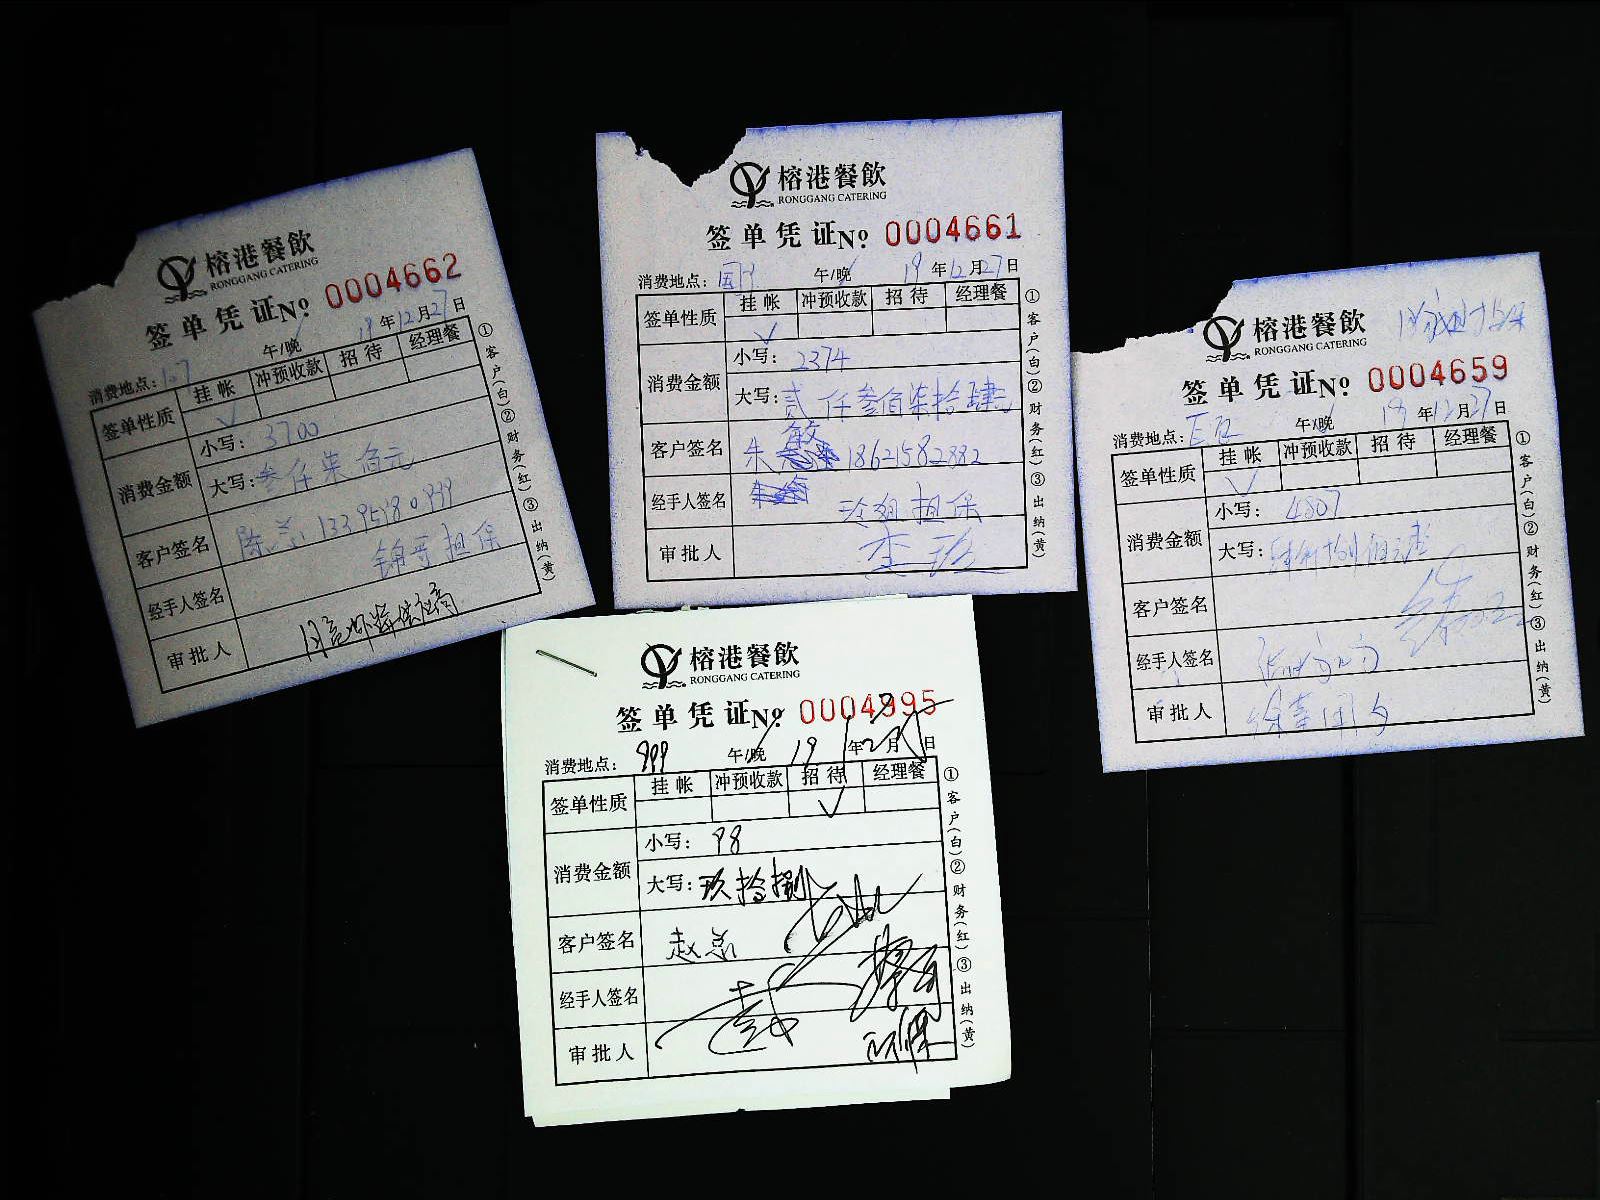 榕港餐飲
RONGGANG CATERING
签单凭证№ 0004662
消费地点： 午/晚 19年12月27日
签单性质 挂帐 冲预收款 招待 经理餐
✓
消费金额 小写：3700
大写：叁仟柒佰元
客户签名 陈总
锦哥担保
经手人签名
审批人
①客户(白)②财务(红)③出纳(黄)
榕港餐飲
RONGGANG CATERING
签单凭证№ 0004661
消费地点： 午/晚 19年12月27日
签单性质 挂帐 冲预收款 招待 经理餐
✓
消费金额 小写：2374
大写：贰仟叁佰柒拾肆元
客户签名 朱敏 18621582882
经手人签名 担保
审批人 李玲
①客户(白)②财务(红)③出纳(黄)
榕港餐飲
RONGGANG CATERING
担保
签单凭证№ 0004659
消费地点： 午/晚 19年12月27日
签单性质 挂帐 冲预收款 招待 经理餐
✓
消费金额 小写：4807
大写：
客户签名
经手人签名
审批人
①客户(白)②财务(红)③出纳(黄)
榕港餐飲
RONGGANG CATERING
签单凭证№ 0004995
消费地点：999 午/晚 19年 月 日
签单性质 挂帐 冲预收款 招待 经理餐
✓
消费金额 小写：98
大写：玖拾捌
客户签名 赵总
经手人签名
审批人
①客户(白)②财务(红)③出纳(黄)